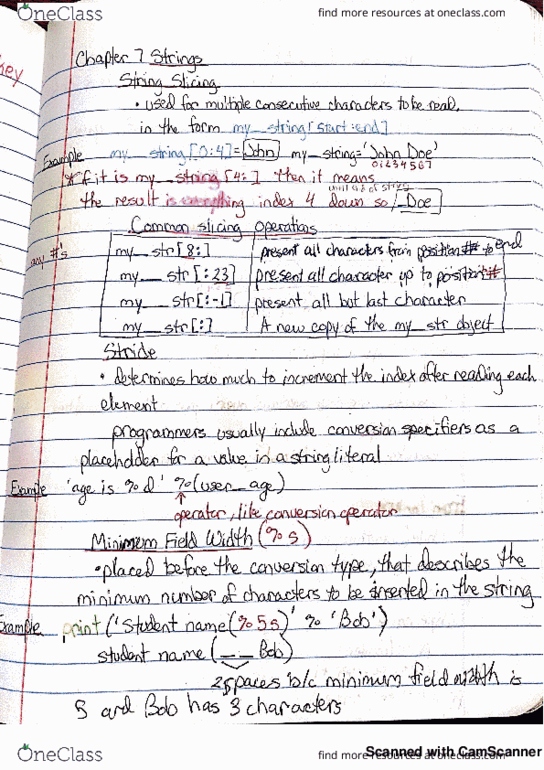 OneClass
find more resources at oneclass.com
key
Chapter 7 Strings
String Slicing
• used for multiple consecutive characters to be read,
in the form my_string[start:end]
Example my_string[0:4]=John my_string='John Doe'
01234567
* if it is my_string[4:] then it means
until end of string
the result is everything index 4 down so _Doe
Common slicing operations
any #'s
my_str[8:] present all characters from position # to end
my_str[:23] present all character up to position #
my_str[:-1] present all but last character
my_str[:] A new copy of the my_str object
Stride
• determines how much to increment the index after reading each
element
programmers usually include conversion specifiers as a
placeholder for a value in a string literal
Example 'age is %d' %(user_age)
operator, like conversion operator
Minimum Field Width (%s)
• placed before the conversion type, that describes the
minimum number of characters to be inserted in the string
Example print('Student name(%5s)' % 'Bob')
student name (_ _ Bob)
2 spaces b/c minimum field width is
5 and Bob has 3 characters
OneClass
find more resources at oneclass.com
Scanned with CamScanner